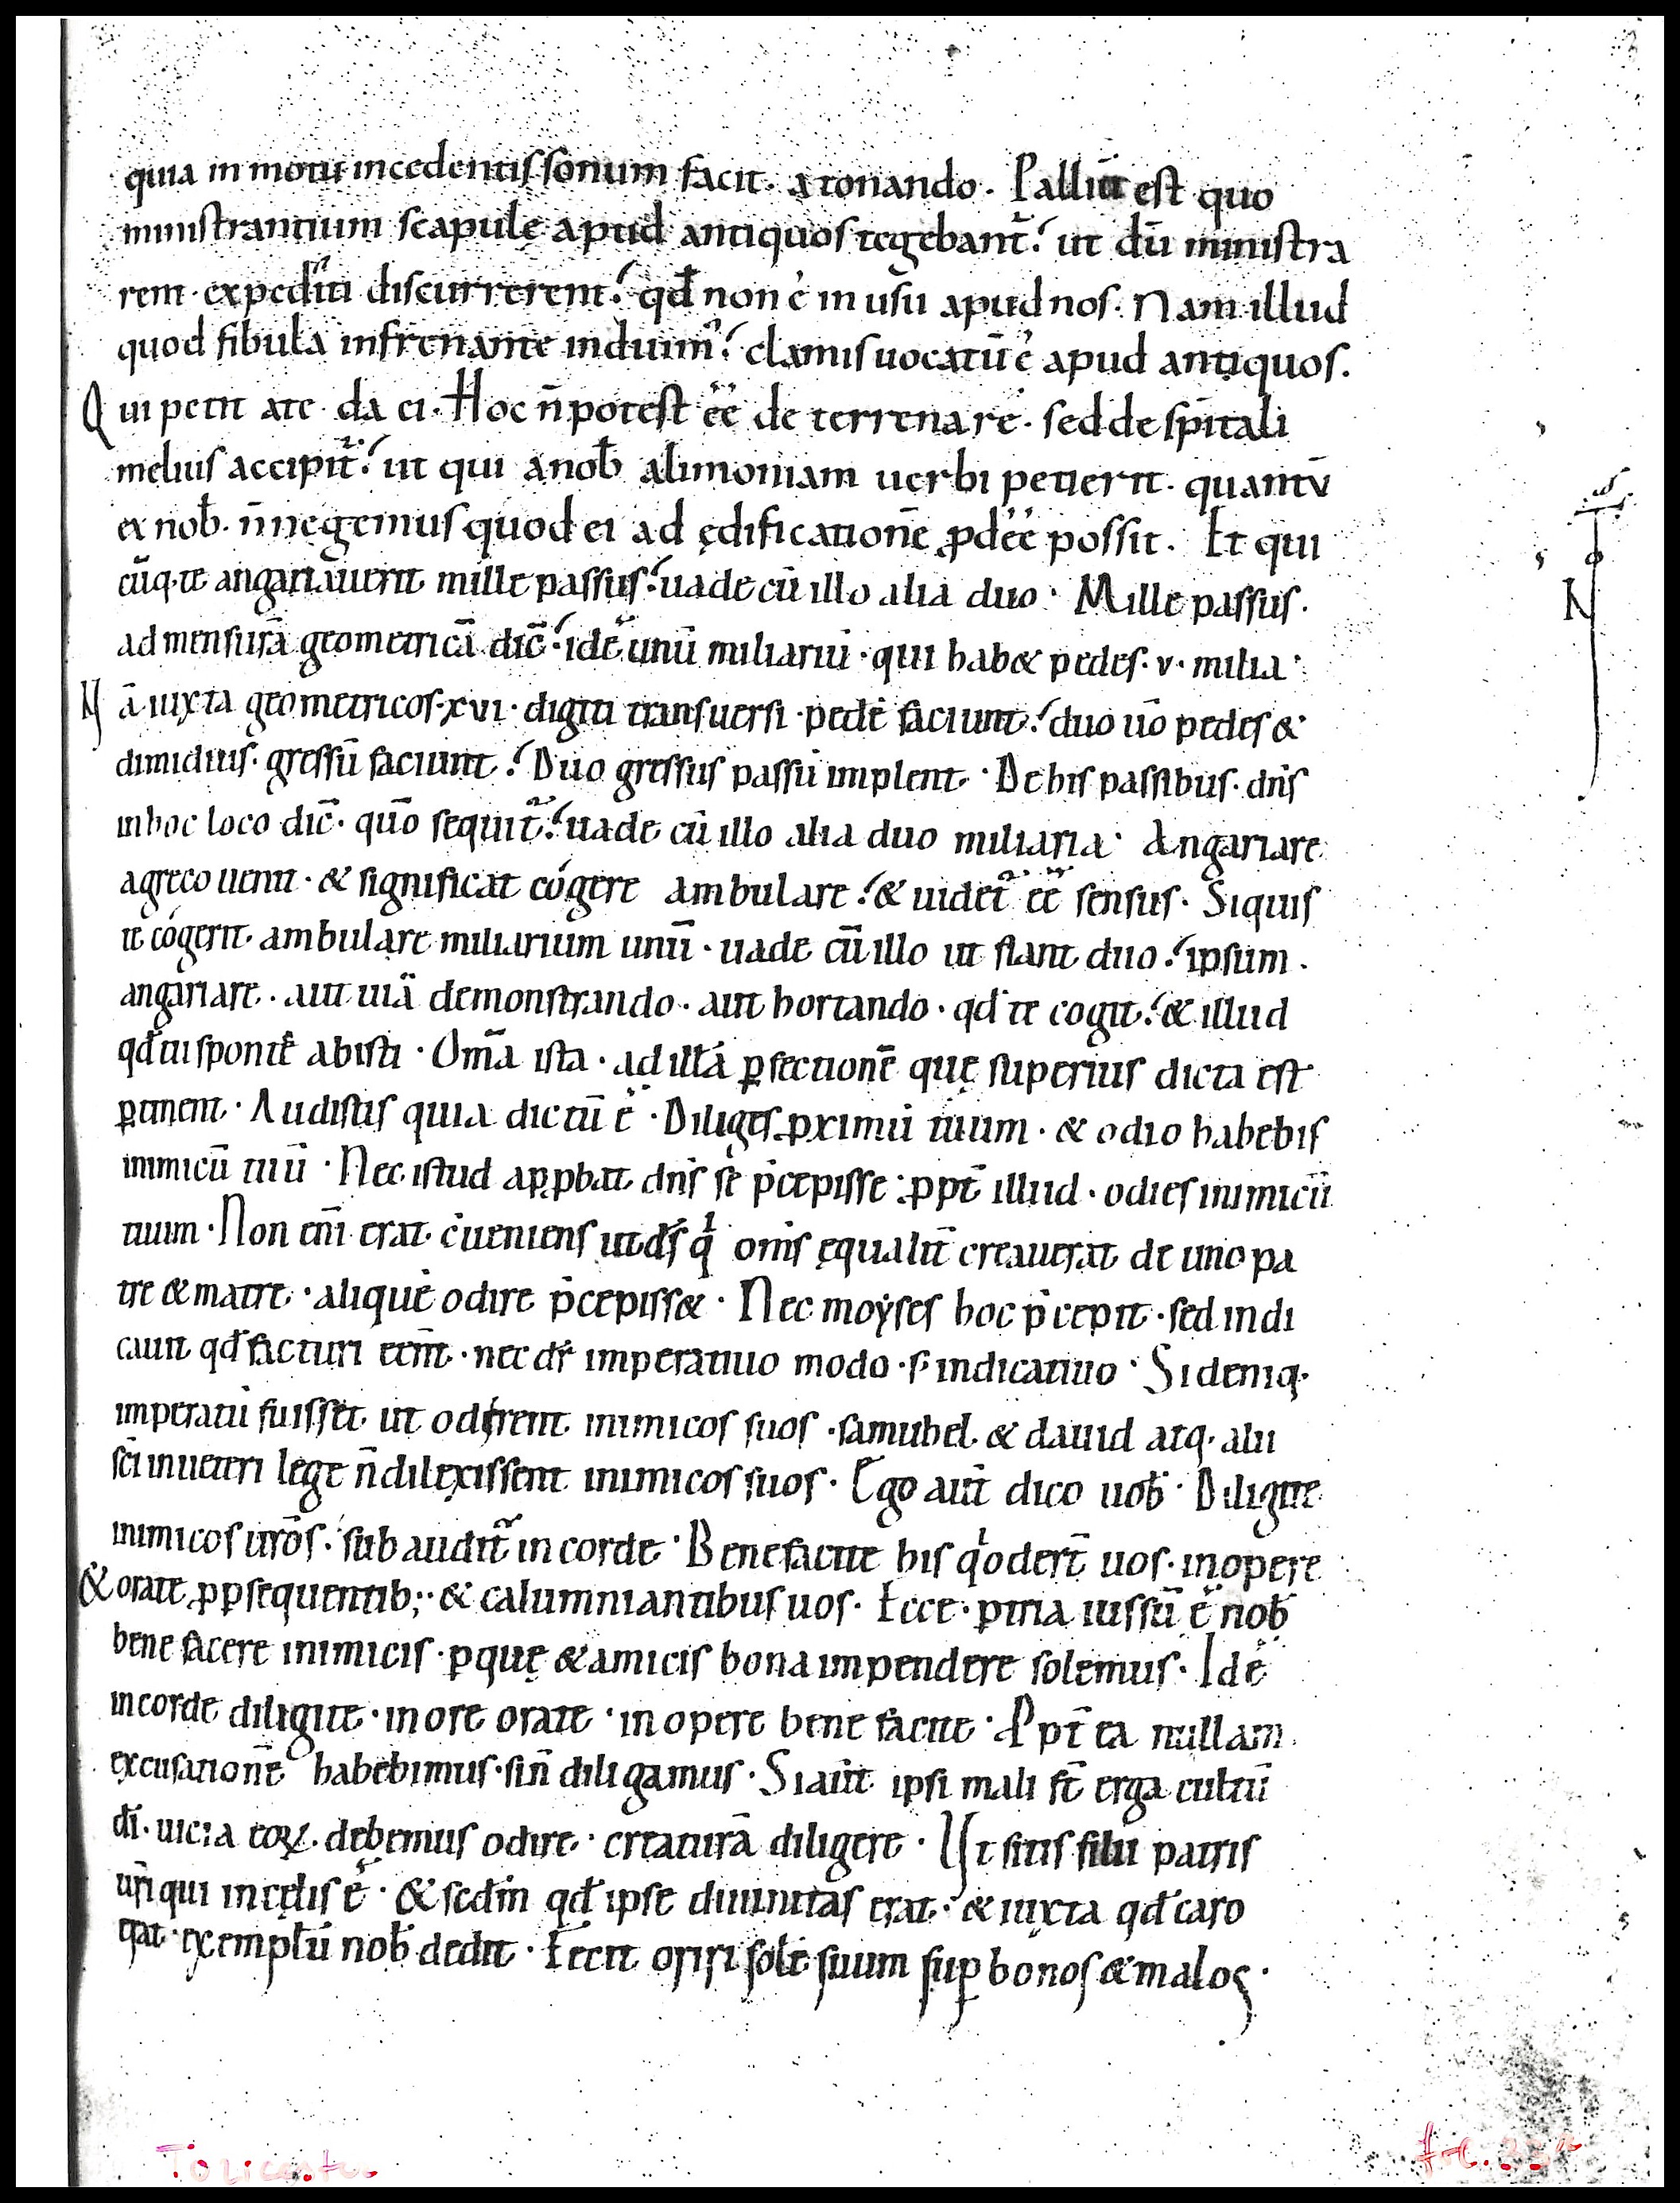 quia in motu incedentis sonum facit. a tonando. Palliū est quo
ministrantium scapulę apud antiquos tegebant᷑. ut dū ministra
rent expediti discurrerent. qđ non ē in usu apud nos. Nam illud
quod fibula infrenante induim᾿. clamis uocatū ē apud antiquos.
Qui petit a te da ei. Hoc n̄ potest eē de terrena re. sed de spītali
melius accipit᷑. ut qui a nob̄ alimoniam uerbi petierit. quantū
ex nob̄. n̄ negemus quod ei ad ędificationē ꝓdeē possit. Et qui
cūq. te angariauerit mille passus. uade cū illo alia duo. Mille passus.
ad mensurā geometricā dic̄. id ē unū miliariū. qui hab& pedes. v. milia.
Nā iuxta geometricos. xvi. digiti transuersi. pedē faciunt. duo uō pedes &
dimidius. gressū faciunt. Duo gressus passū implent. De his passibus. dn̄s
in hoc loco dic̄. quō sequit᷑. uade cū illo alia duo miliaria. Angariare
a greco uenit. & significat cógere ambulare. & uidet᷑ eē sensus. Siquis
te cógerit. ambulare miliarium unū. uade cū illo ut fiant duo. ipsum.
angariare. aut uiā demonstrando. aut hortando. qđ te cogit. & illud
qđ tu sponte abisti. Om̄a ista. ad illā ꝑfectionē quę superius dicta est
ꝑtinent. Audistis quia dictū ē. Diliges ꝓximū tuum. & odio habebis
inimicū tuū. Nec istud apꝓbat dn̄s se p̄cepisse ꝓpt̄ illud. odies inimicū
tuum. Non eni̅ erat c̄ueniens ut dš qⁱ omīs ęqualit̄ creauerat de uno pa
tre & matre. aliquē odire p̄cepiss&. Nec moẏses hoc p̄cepit. sed indi
cauit qđ facturi eēnt. nec dr̄ imperatiuo modo. s᾿ indicatiuo. Si deniq.
imperatū fuisset ut odirent inimicos suos. samuhel. & dauid atq. alii
sc̄i in ueteri lege n̄ dilexissent inimicos suos. Ego aut̄ dico uob̄. Diligite
inimicos ur̄os. subaudit᷑ in corde. Benefacite his qⁱ odert̄ uos. in opere
& orate ꝓ ꝑsequentib; & calumniantibus uos. Ecce. ꝑ tria iussū ē nob̄
bene facere inimicis. ꝑ quę & amicis bona impendere solemus. Id ē
in corde diligite. in ore orate. in opere bene facite. Ppt̄ ea nullam
excusationē habebimus. si n̄ diligamus. Si aut̄ ipsi mali st̄ erga cultū
dī. uicia eoꝝ. debemus odire. creaturā diligere. Ut sitis filii patris
ur̄i qui in cęlis ē. & sedm̄ qđ ipse diuinitas erat. & iuxta qđ caro
erat. exemplū nob̄ dedit. Fecit oriri solē suum suꝑ bonos & malos.
N